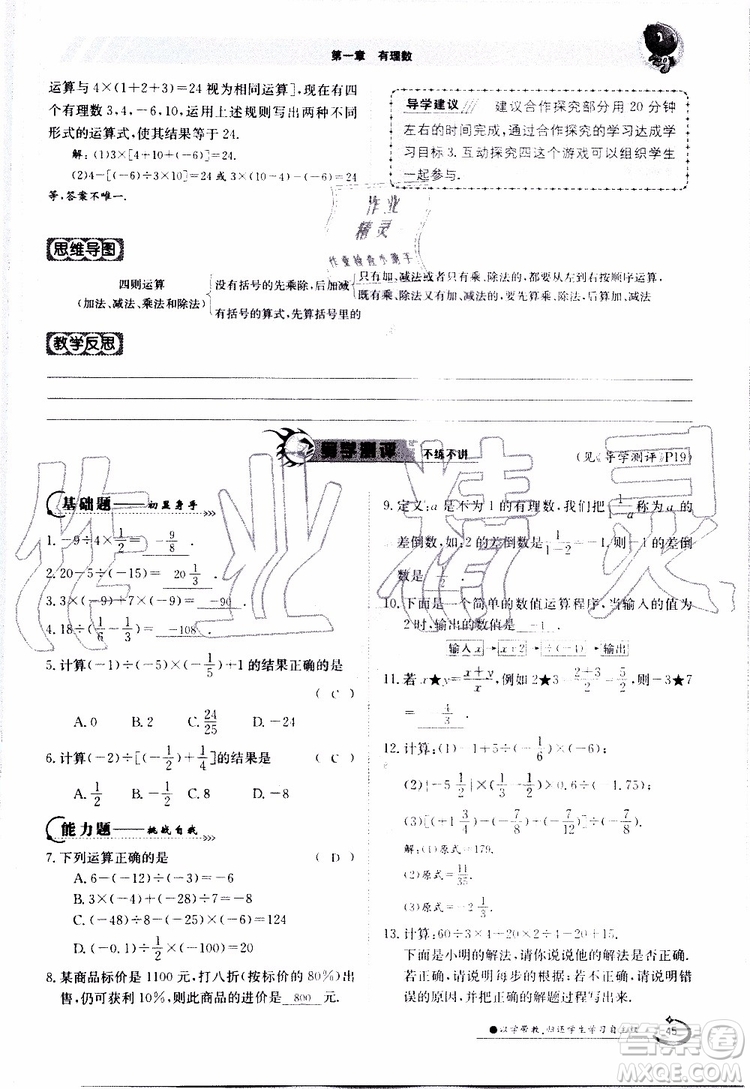 第一章 有理数
运算与 4×(1+2+3)=24 视为相同运算],现在有四
个有理数 3,4,-6,10,运用上述规则写出两种不同
形式的运算式,使其结果等于 24.
解:(1)3×[4+10+(-6)]=24.
(2)4-[(-6)÷3×10]=24 或 3×(10-4)-(-6)=24
等,答案不唯一.
导学建议 建议合作探究部分用 20 分钟
左右的时间完成,通过合作探究的学习达成学
习目标 3.互动探究四这个游戏可以组织学生
一起参与.
思维导图
四则运算
(加法、减法、乘法和除法)
没有括号的先乘除,后加减
只有加、减法或只有乘、除法的,都要从左到右按顺序运算
既有乘、除法又有加、减法的,要先算乘、除法,后算加、减法
有括号的算式,先算括号里的
教学反思
导学测评 不练不讲
(见《导学测评》P19)
基础题——初显身手
1. -9÷4×1/2= -9/8 .
2. 20-5÷(-15)= 20 1/3 .
3. 3×(-10)÷7×(-9)÷(-9)= -90 .
4. 18÷(1/6-1/3)= -108 .
5. 计算(-1)÷(-5)×(-1/5)+1 的结果正确的是
( C )
A. 0 B. 2 C. 24/25 D. -24
6. 计算(-2)÷[(-1/2)+1/4]的结果是 ( C )
A. 1/2 B. -1/2 C. 8 D. -8
能力题——挑战自我
7. 下列运算正确的是 ( D )
A. 6-(-12)÷(-3)=-6
B. 6-(-18)÷6=-3
C. (-48)÷(-8)-(-25)×(-6)=124
D. (-0.1)÷1/2×(-100)=20
8. 某商品标价是 1100 元,打八折(按标价的 80%)出
售,仍可获利 10%,则此商品的进价是 800 元.
9. 定义:a 是不为 1 的有理数,我们把 1/(1-a) 称为 a 的
差倒数,如:2 的差倒数是 1/(1-2)=-1,-1 的差倒
数是 1/2 .
10. 下面是一个简单的数值运算程序,当输入的值为
2 时,输出的数值是 -1 .
输入x → x+2 → ÷(-4) → 输出
11. 若 x★y=(x+y)/x,例如 2★3=(2+3)/2=5/2,则-3★7
= -4/3 .
12. 计算:(1)-1+5÷(-1/6)×(-6);
(3)[(+1/3)-(-7/8)-(-7/12)]÷(-7/8).
解:(1)原式=179.
(2)原式=11/35.
(3)原式=-2 1/3.
13. 计算:60÷3×4-20×2+15.
下面是小明的解法,请你说说他的解法是否正确.
若正确,请你说明每步的根据;若不正确,请说明错
误的原因,并把正确的解题过程写出来.
45
作业精灵
作业检查小助手
答案圈